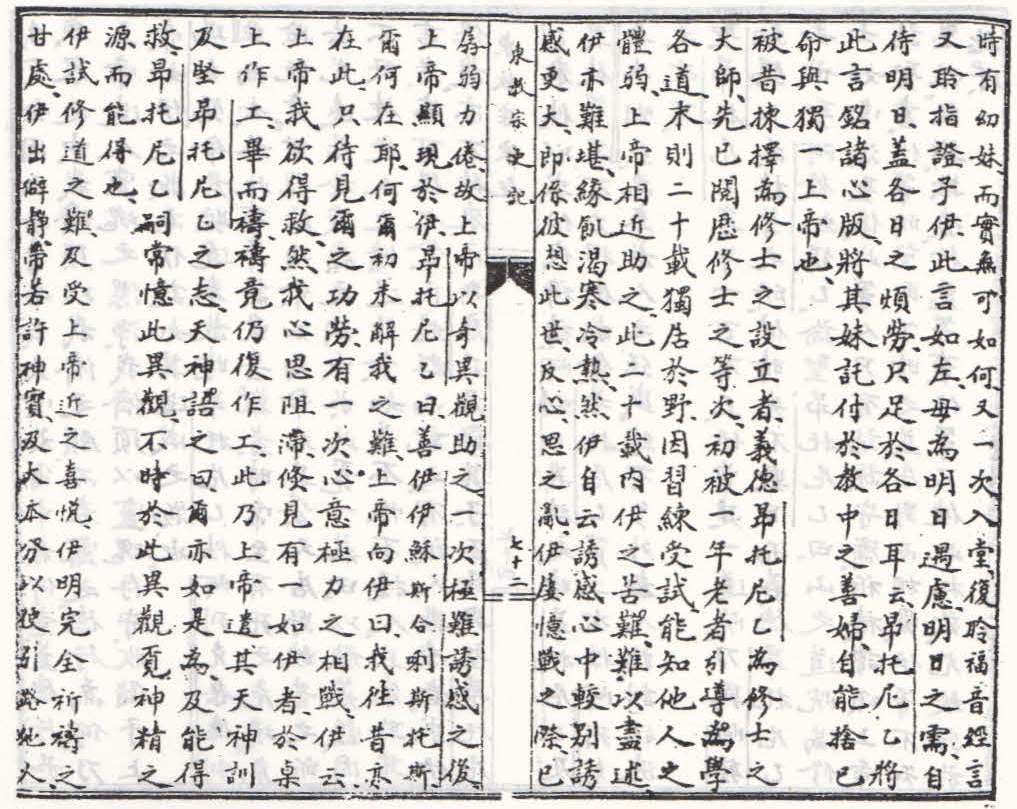 時有幼妹、而實無可如何、又一次入堂、復聆福音經言
又聆指證乎伊、此言如左、毋為明日過慮、明日之需、自
待明日、蓋各日之煩勞、只足於各日耳云、昂托尼乙將
此言銘諸心版、將其妹託付於教中之善婦、自能捨己
命與獨上帝也、
被昔揀擇為修士之設立者、義德昂托尼乙為修士之
大師、先已閱歷修士之等次、初被一年老者引導為學
各道、末則二十載獨居於野、因習練受試、能知他人之
體弱、上帝相近助之、此二十載內、伊之苦難、難以盡述
伊亦難堪、緣飢渴寒冷熱、然伊自云、誘惑心中較別誘
感更大、即係彼想此世、反心思之亂、伊屢憶戰之際、已
東教宗史記
七十三
孱弱力倦、故上帝以奇異觀助之、一次極難誘惑之後
上帝顯現於伊、昂托尼乙曰、善伊伊穌斯合利斯托斯
爾何在耶、何爾初未解我之難、上帝向伊曰、我往昔亦
在此、只待見爾之功勞、有一次心意極力之相戰、伊云
上帝我欲得救、然我心思阻滯、倏見有一如伊者於桌
上作工、工畢而禱、禱竟仍復作工、此乃上帝遣其天神訓
及堅昂托尼乙之志、天神語之曰、爾亦如是為、及能得
救、昂托尼乙嗣常憶此異觀、不時於此異觀覓神精之
源而能得也、
伊試修道之難、及受上帝近之喜悅、伊明完全祈禱之
甘處、伊出僻靜、帶若許神寶及大本分、以從引路他人